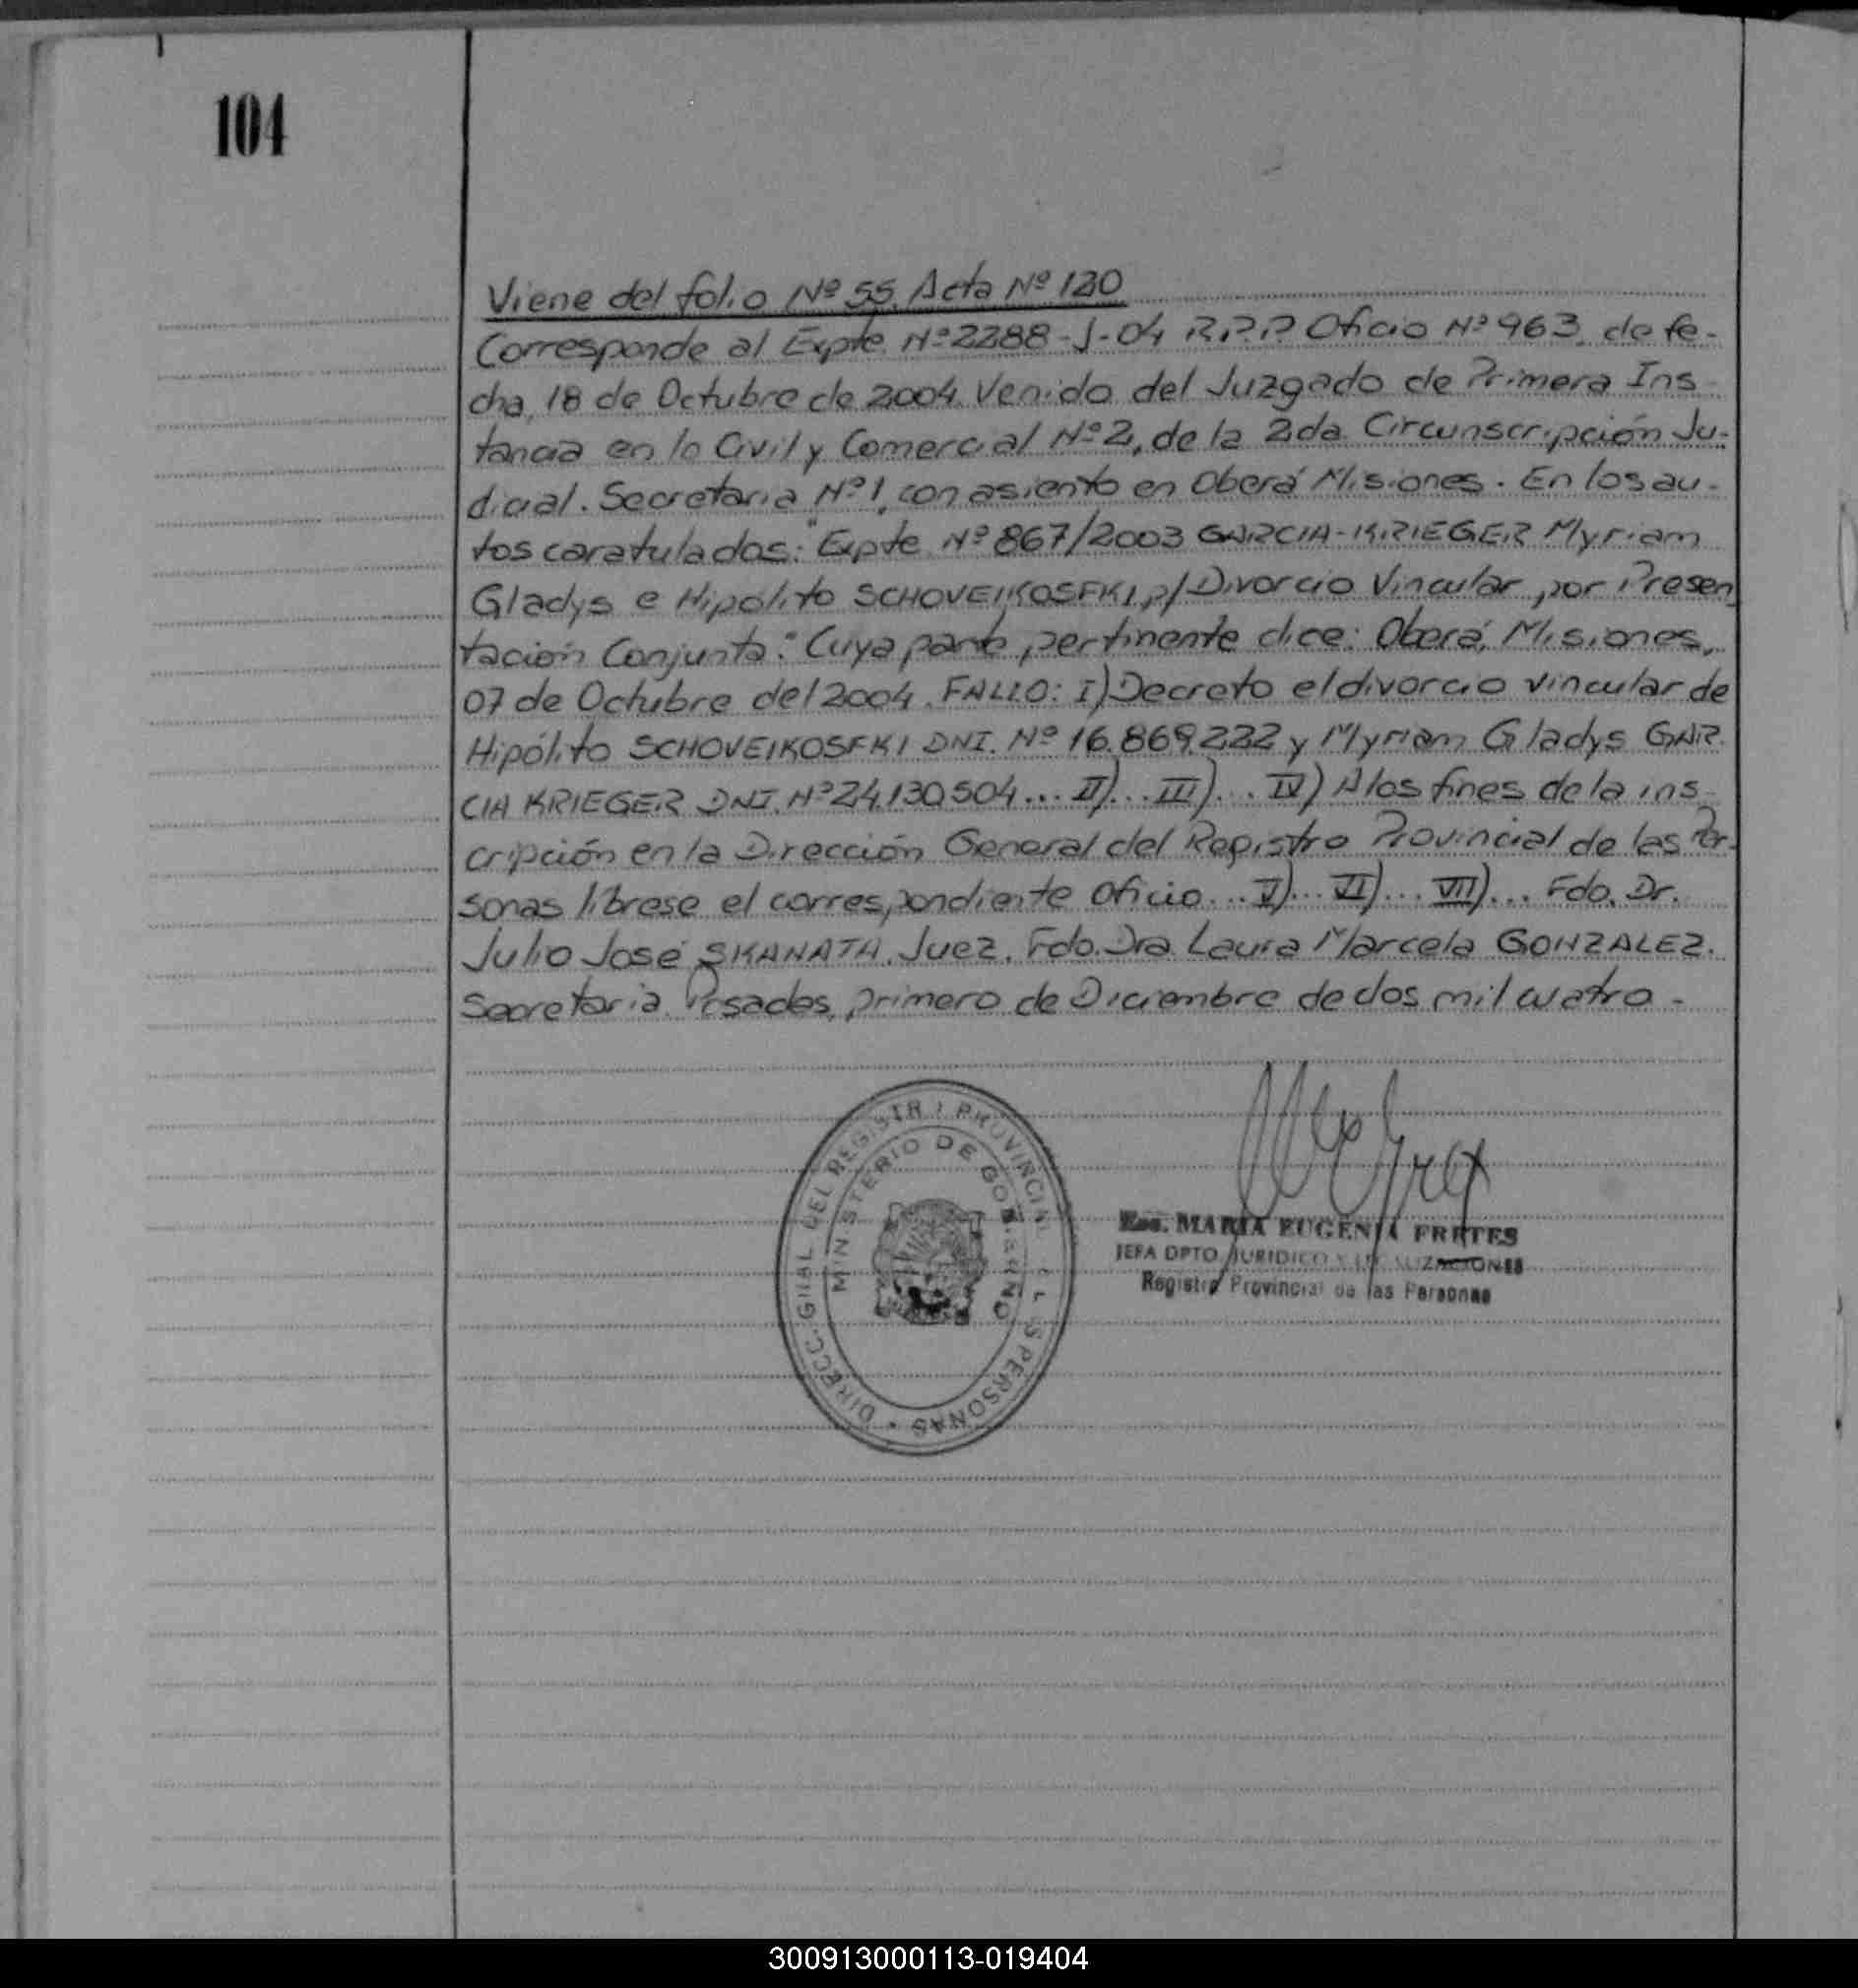 104
Viene del folio Nº 55. Acta Nº 120
Corresponde al Expte. Nº 2288-J-04 R.P.P. Oficio Nº 963, de fe-
cha, 18 de Octubre de 2004. Venido del Juzgado de Primera Ins-
tancia en lo Civil y Comercial Nº 2, de la 2da. Circunscripción Ju-
dicial. Secretaria Nº 1, con asiento en Oberá Misiones. En los au-
tos caratulados: "Expte Nº 867/2003 GARCIA-KRIEGER Myriam
Gladys e Hipólito SCHOVEIKOSFKI p/Divorcio Vincular por Presen
tación Conjunta." Cuya parte pertinente dice: Oberá, Misiones,
07 de Octubre del 2004. FALLO: I) Decreto el divorcio vincular de
Hipólito SCHOVEIKOSFKI DNI. Nº 16.869.222 y Myriam Gladys GAR
CIA KRIEGER DNI. Nº 24.130.504... II)... III)... IV) A los fines de la ins-
cripción en la Dirección General del Registro Provincial de las Per-
sonas líbrese el correspondiente oficio... V)... VI)... VII)... Fdo. Dr.
Julio José SKANATA. Juez. Fdo. Dra. Laura Marcela GONZALEZ.
Secretaria. Posadas, primero de Diciembre de dos mil cuatro -
DIRECC. GRAL DEL REGISTRO PROVINCIAL DE LAS PERSONAS
MINISTERIO DE GOBIERNO
Esc. MARIA EUGENIA FRETES
JEFA DPTO JURIDICO Y LEGALIZACIONES
Registro Provincial de las Personas
300913000113-019404